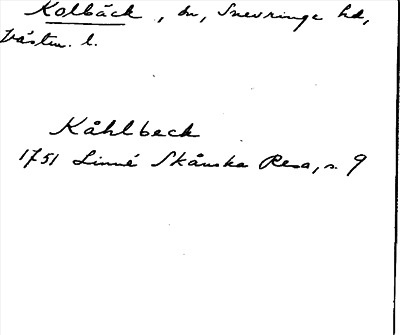 Kolbäck, sn, Snevringe hd,
Västm. l.
Kåhlbeck
1751 Linné Skånska Resa, s. 9